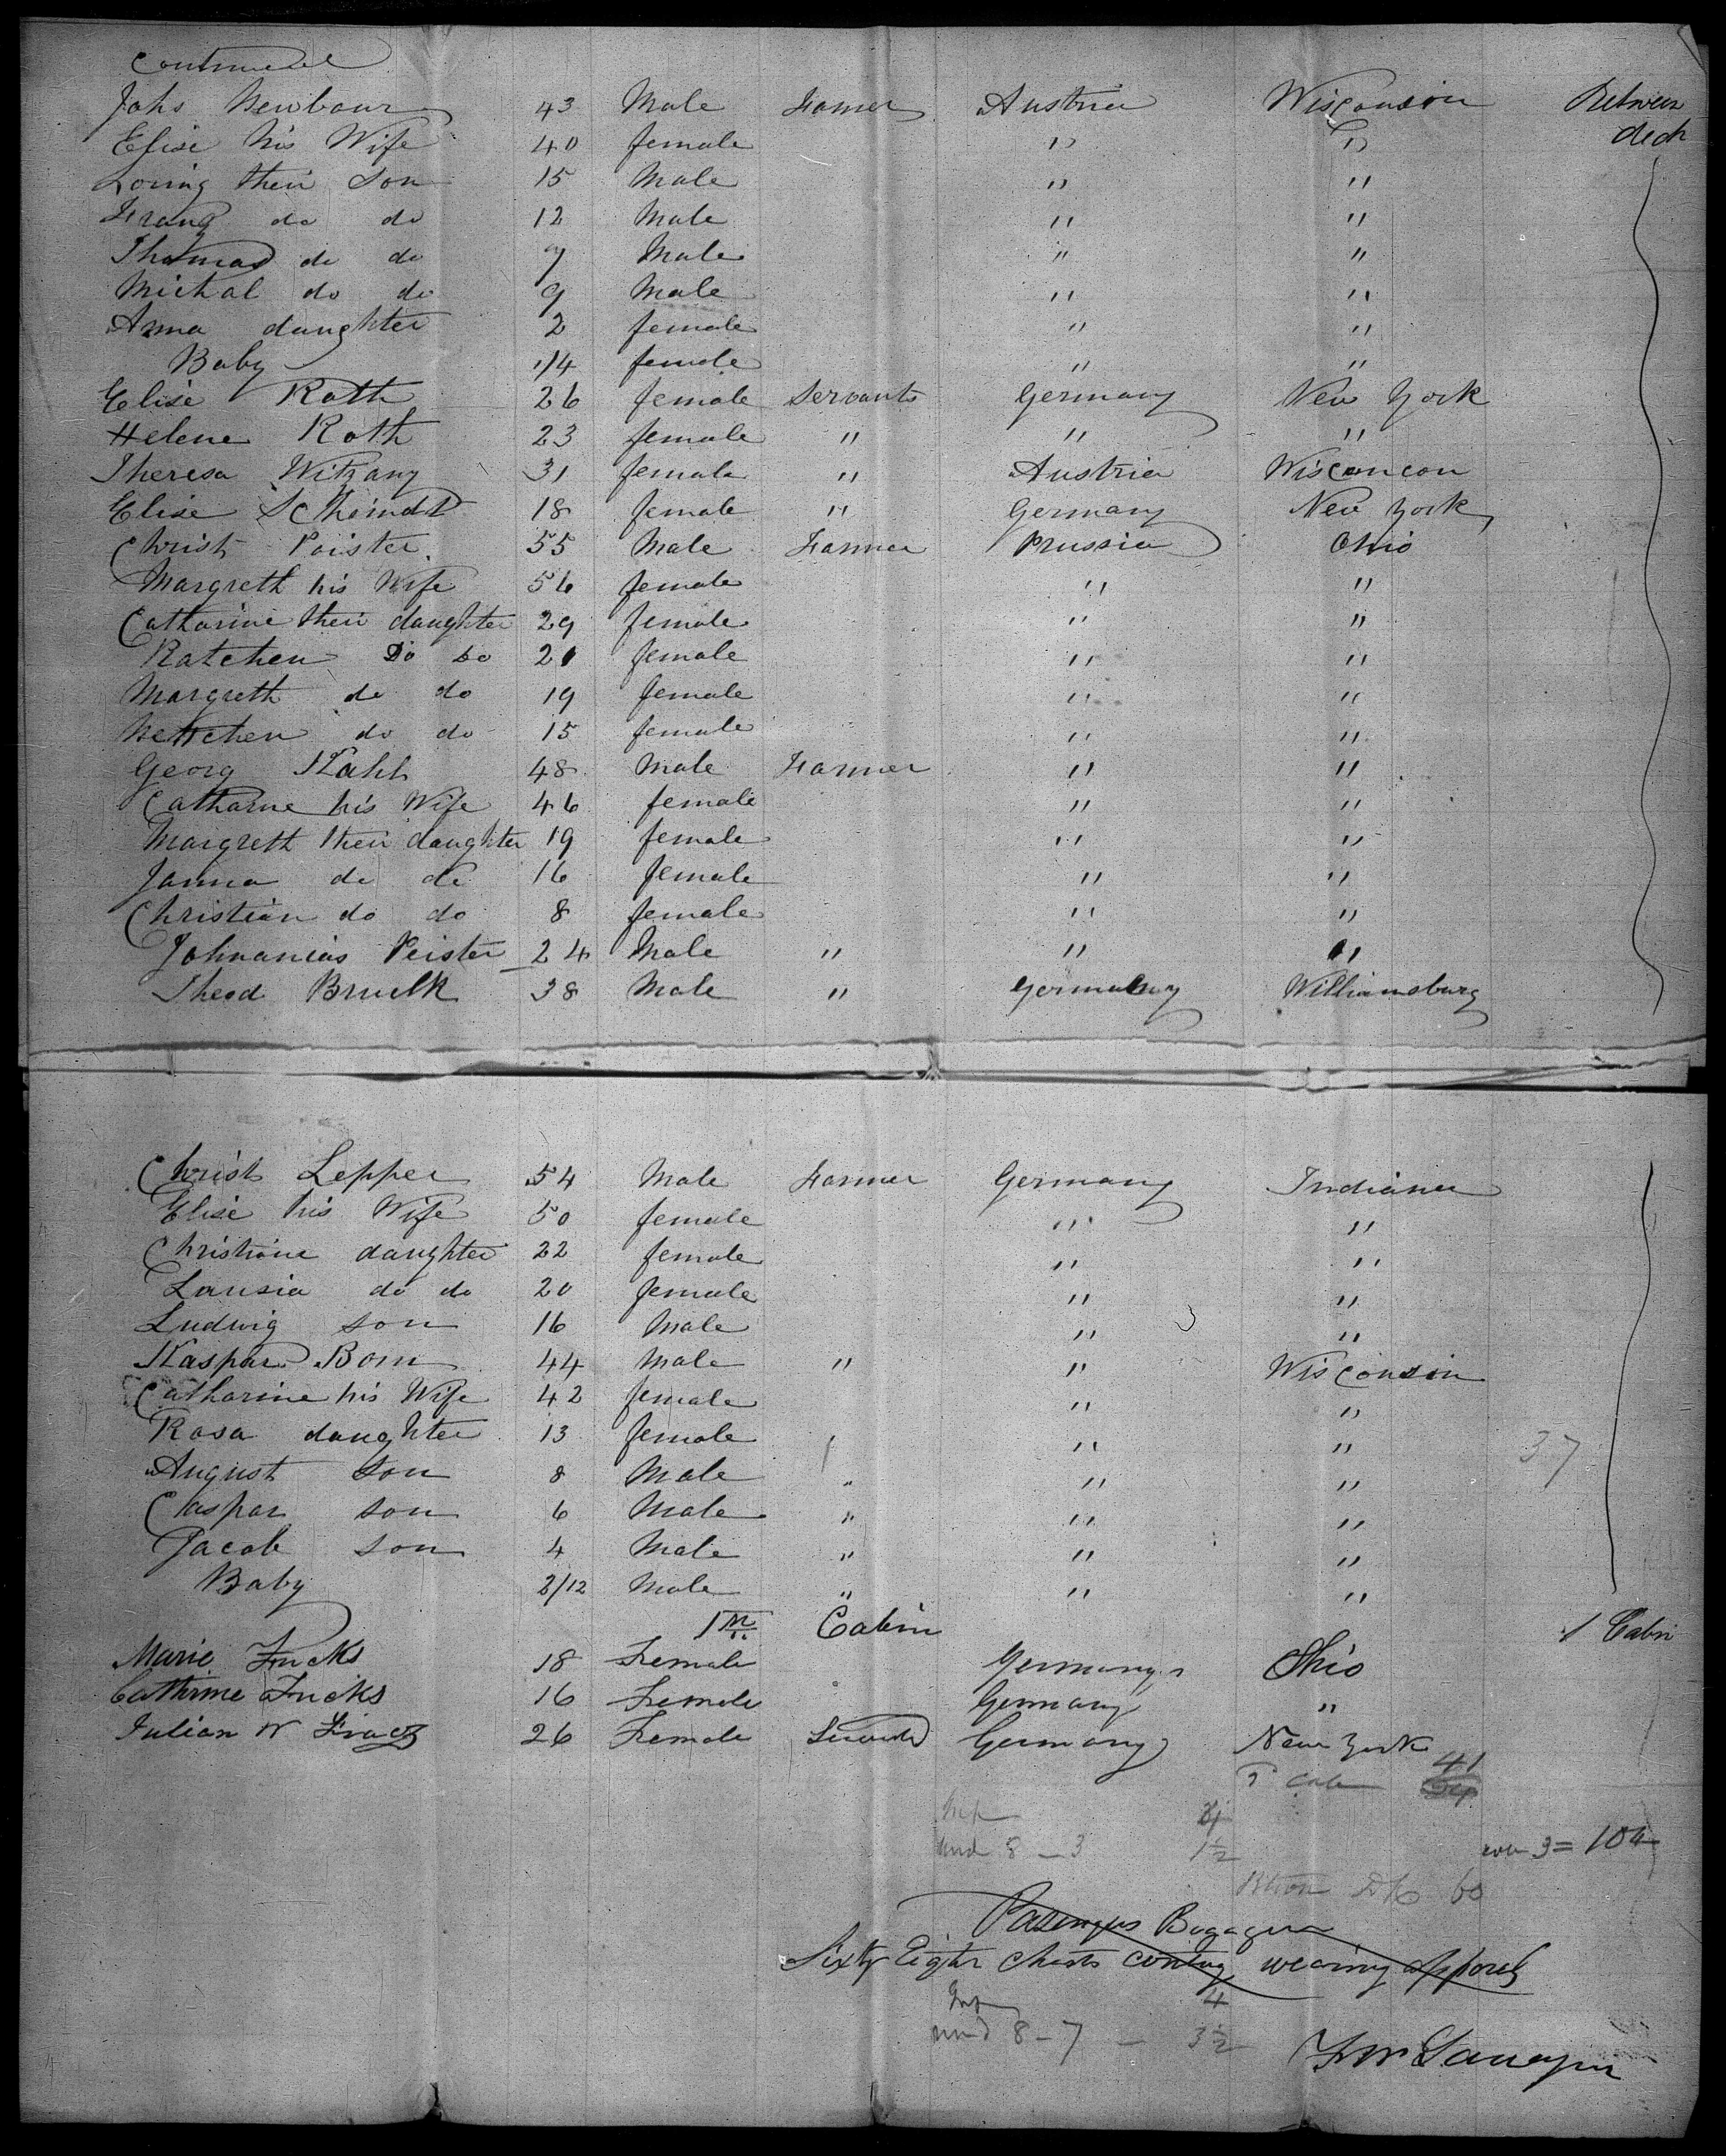 Continued
Johs Newbour 43 Male Farmer Austria Wisconsin Between
Elise his Wife 40 female " " deck
Loring their Son 15 Male " "
Franz do do 12 Male " "
Thomas do do 7 Male " "
Michal do do 9 Male " "
Anna daughter 2 female " "
Baby 1/4 female " "
Elise Roth 26 female Servants Germany New York
Helene Roth 23 female " " "
Theresa Witzany 31 female " Austria Wisconcon
Elise Scheindt 18 female " Germany New York
Christ Peister 55 Male Farmer Prussia Ohio
Margreth his Wife 56 female " "
Catharine their daughter 29 female " "
Katchen Do Do 21 female " "
Margreth do do 19 female " "
Nettchen do do 15 female " "
Georg Kahl 48 Male Farmer " "
Catharne his Wife 46 female " "
Margreth their daughter 19 female " "
Janna do do 16 female " "
Christian do do 8 female " "
Johnanias Peister 24 Male " " "
Theod Bruelk 38 Male " Germany Williamsburg
Christ Lepper 54 Male Farmer Germany Indiana
Elise his Wife 50 female " "
Christiane daughter 22 female " "
Lausia do do 20 female " "
Ludwig son 16 Male " "
Kaspar Born 44 Male " " Wisconsin
Catharine his Wife 42 female " "
Rosa daughter 13 female " " 37
August Son 8 Male " " "
Caspar son 6 Male " " "
Jacob son 4 Male " " "
Baby 2/12 Male " " "
1 Cabin 1 Cabin
Marie Fucks 18 Female Germany Ohio
Cathrine Fucks 16 Female Germany "
Julian W 26 Female Germany New York
41
8 – 3 1½ 3 = 104
60
Passengers Bagage
Sixty Eight Chests contng wearing apparel
4
8 – 7 – 3½